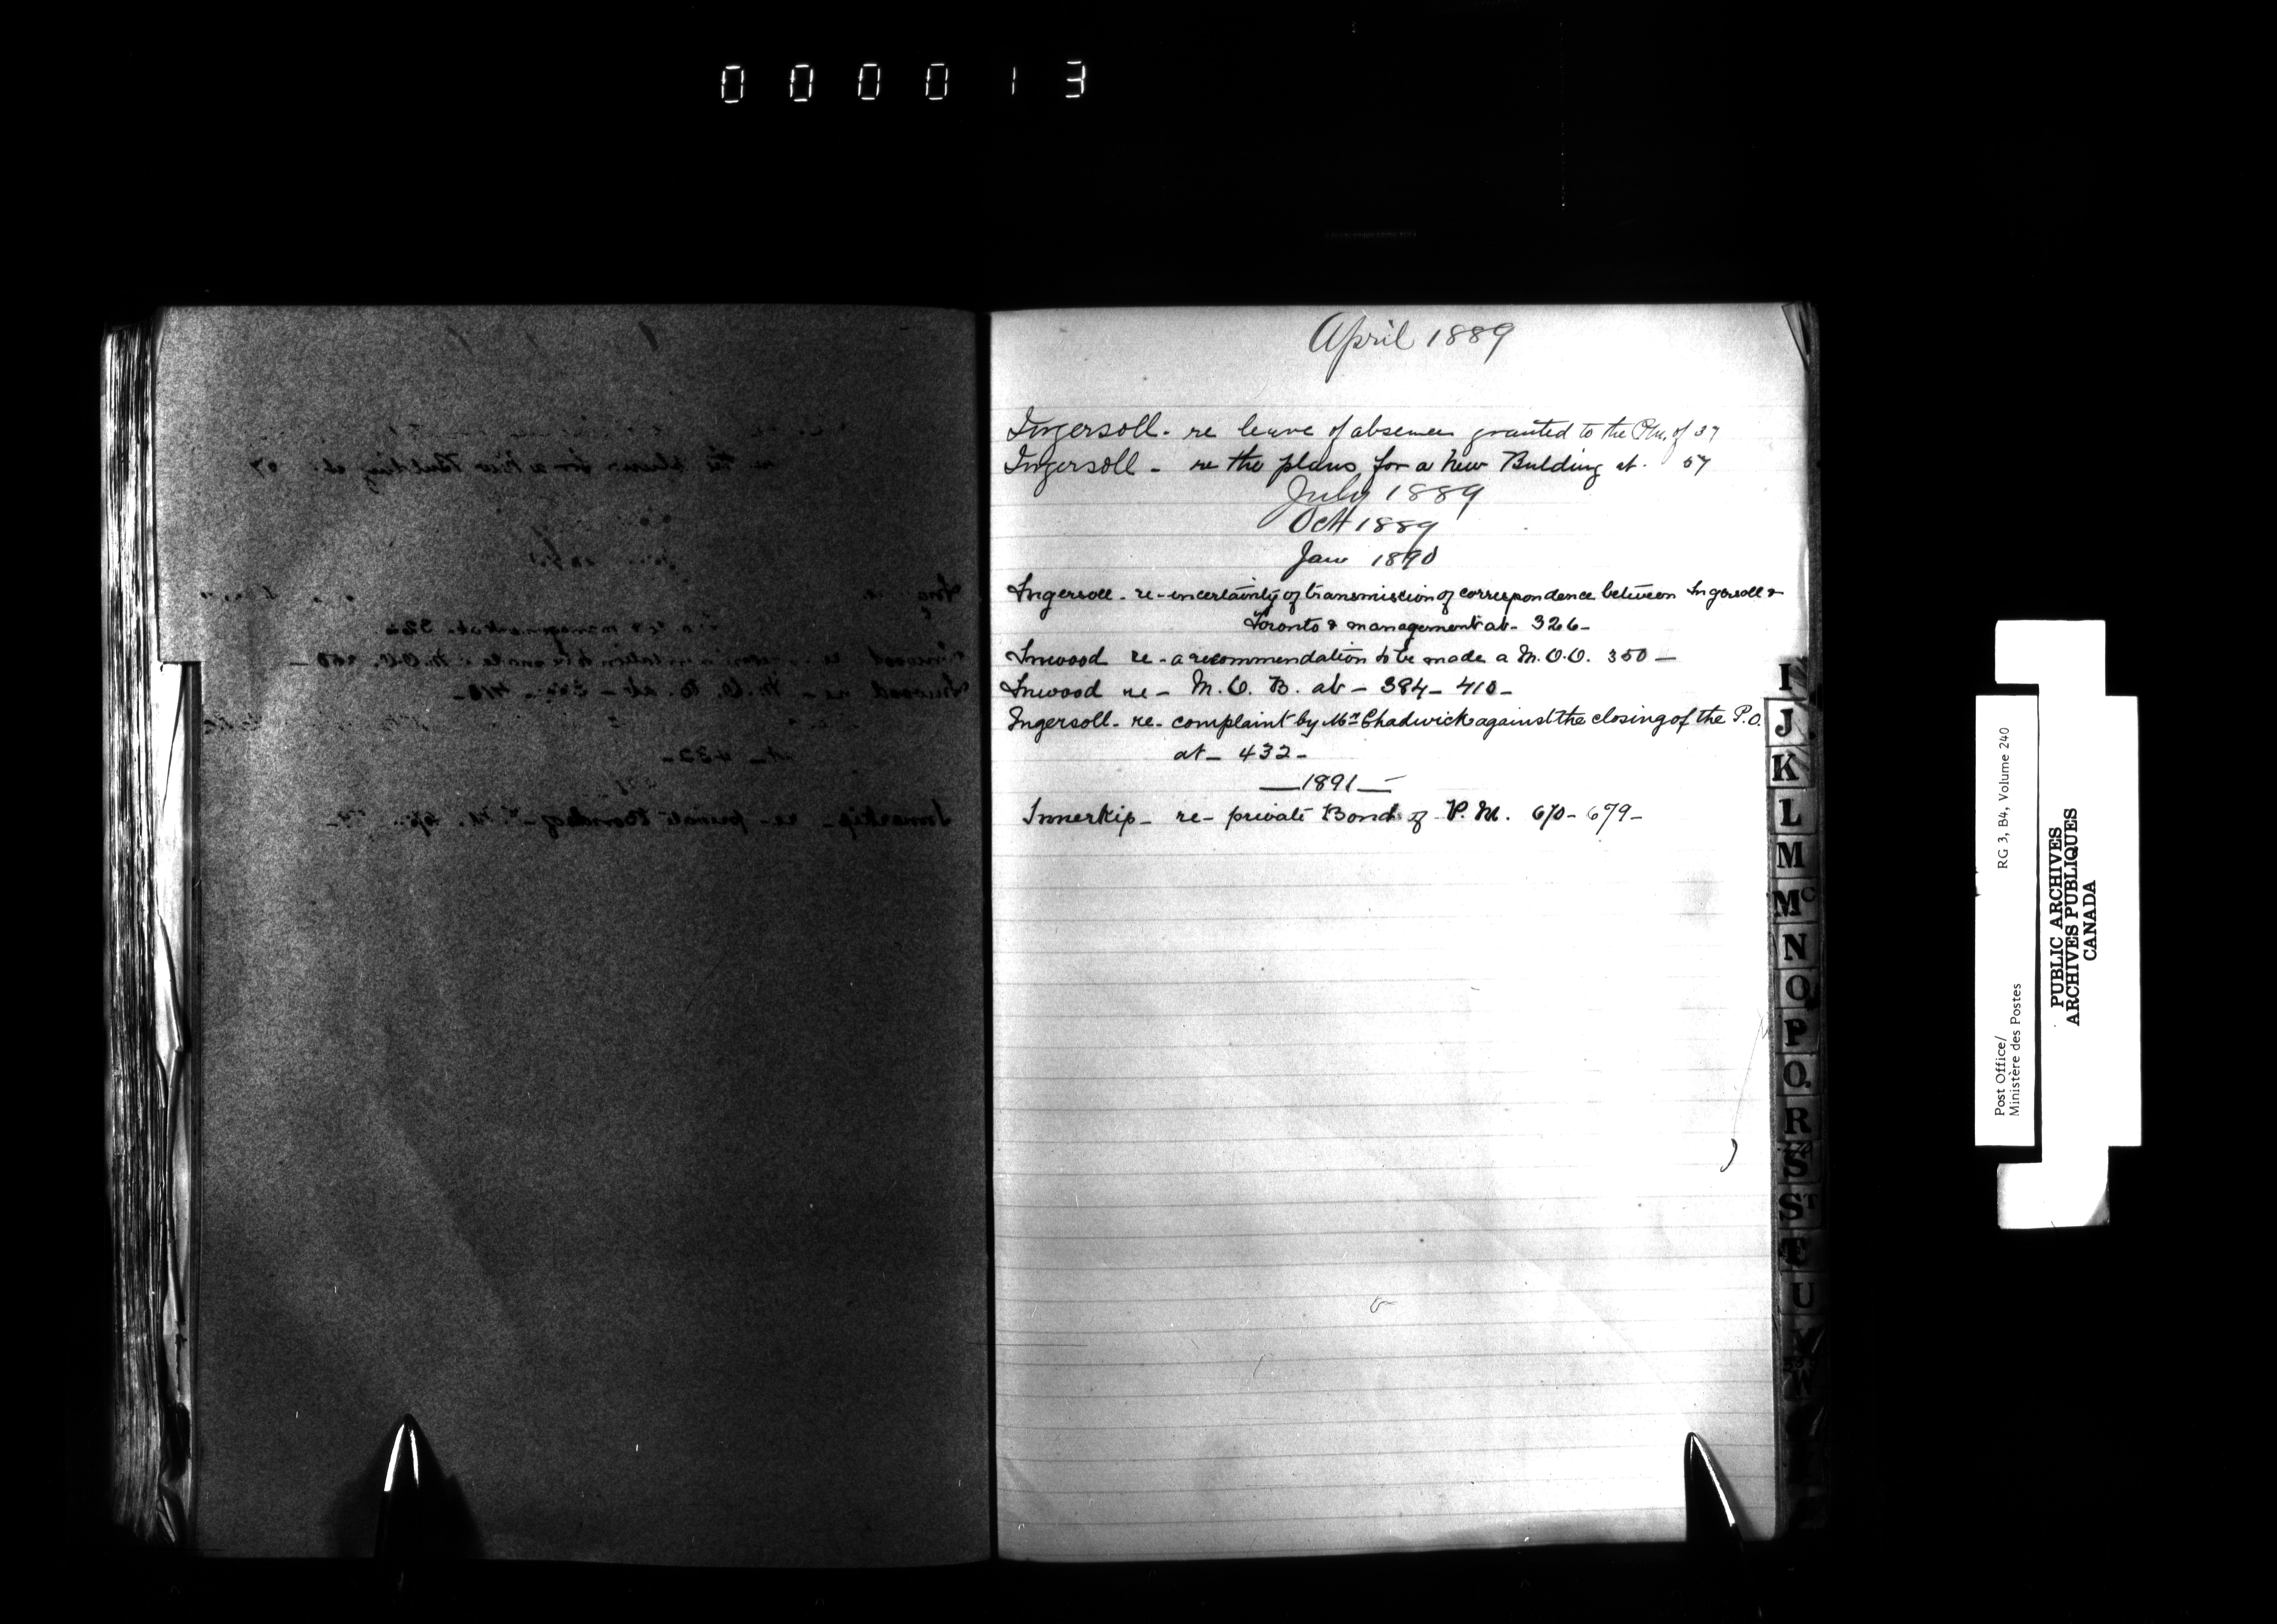 000013
April 1889
Ingersoll - re leave of absence granted to the P.M. of 37
Ingersoll - re the plans for a New Bulding at. 57
July 1889
Oct 1889
Jan 1890
Ingersoll - re - uncertainty of transmission of correspondence between Ingersoll &
Toronto & management at - 326 -
Inwood re - a recommendation to be made a M.O.O. 350 -
Inwood re - M.O.B. at - 384 - 410 -
Ingersoll - re - complaint by Mr Chadwick against the closing of the P.O.
at - 432 -
- 1891 -
Innerkip - re - private Bond of P.M. 670 - 679 -
I
J
K
L
M
Mc
N
O
P
Q
R
S
ST
T
U
V
W
Post Office/
Ministère des Postes
RG 3, B4, Volume 240
PUBLIC ARCHIVES
ARCHIVES PUBLIQUES
CANADA